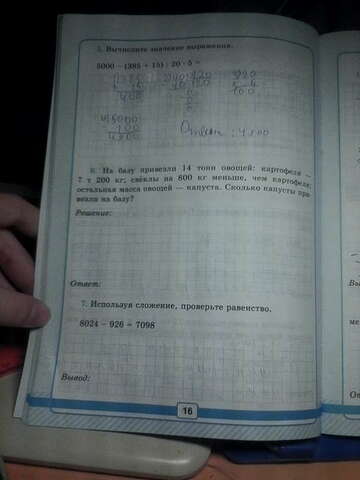 5. Вычислите значение выражения.
5000 – (385 + 15) : 20 · 5 =
400
100
5000
100
Ответ: 4900
6. На базу привезли 14 тонн овощей: картофеля –
7 т 200 кг, свёклы на 800 кг меньше, чем картофеля,
остальная масса овощей — капуста. Сколько капусты при-
везли на базу?
Решение:
Ответ:
7. Используя сложение, проверьте равенство.
8024 – 926 = 7098
Вывод:
16